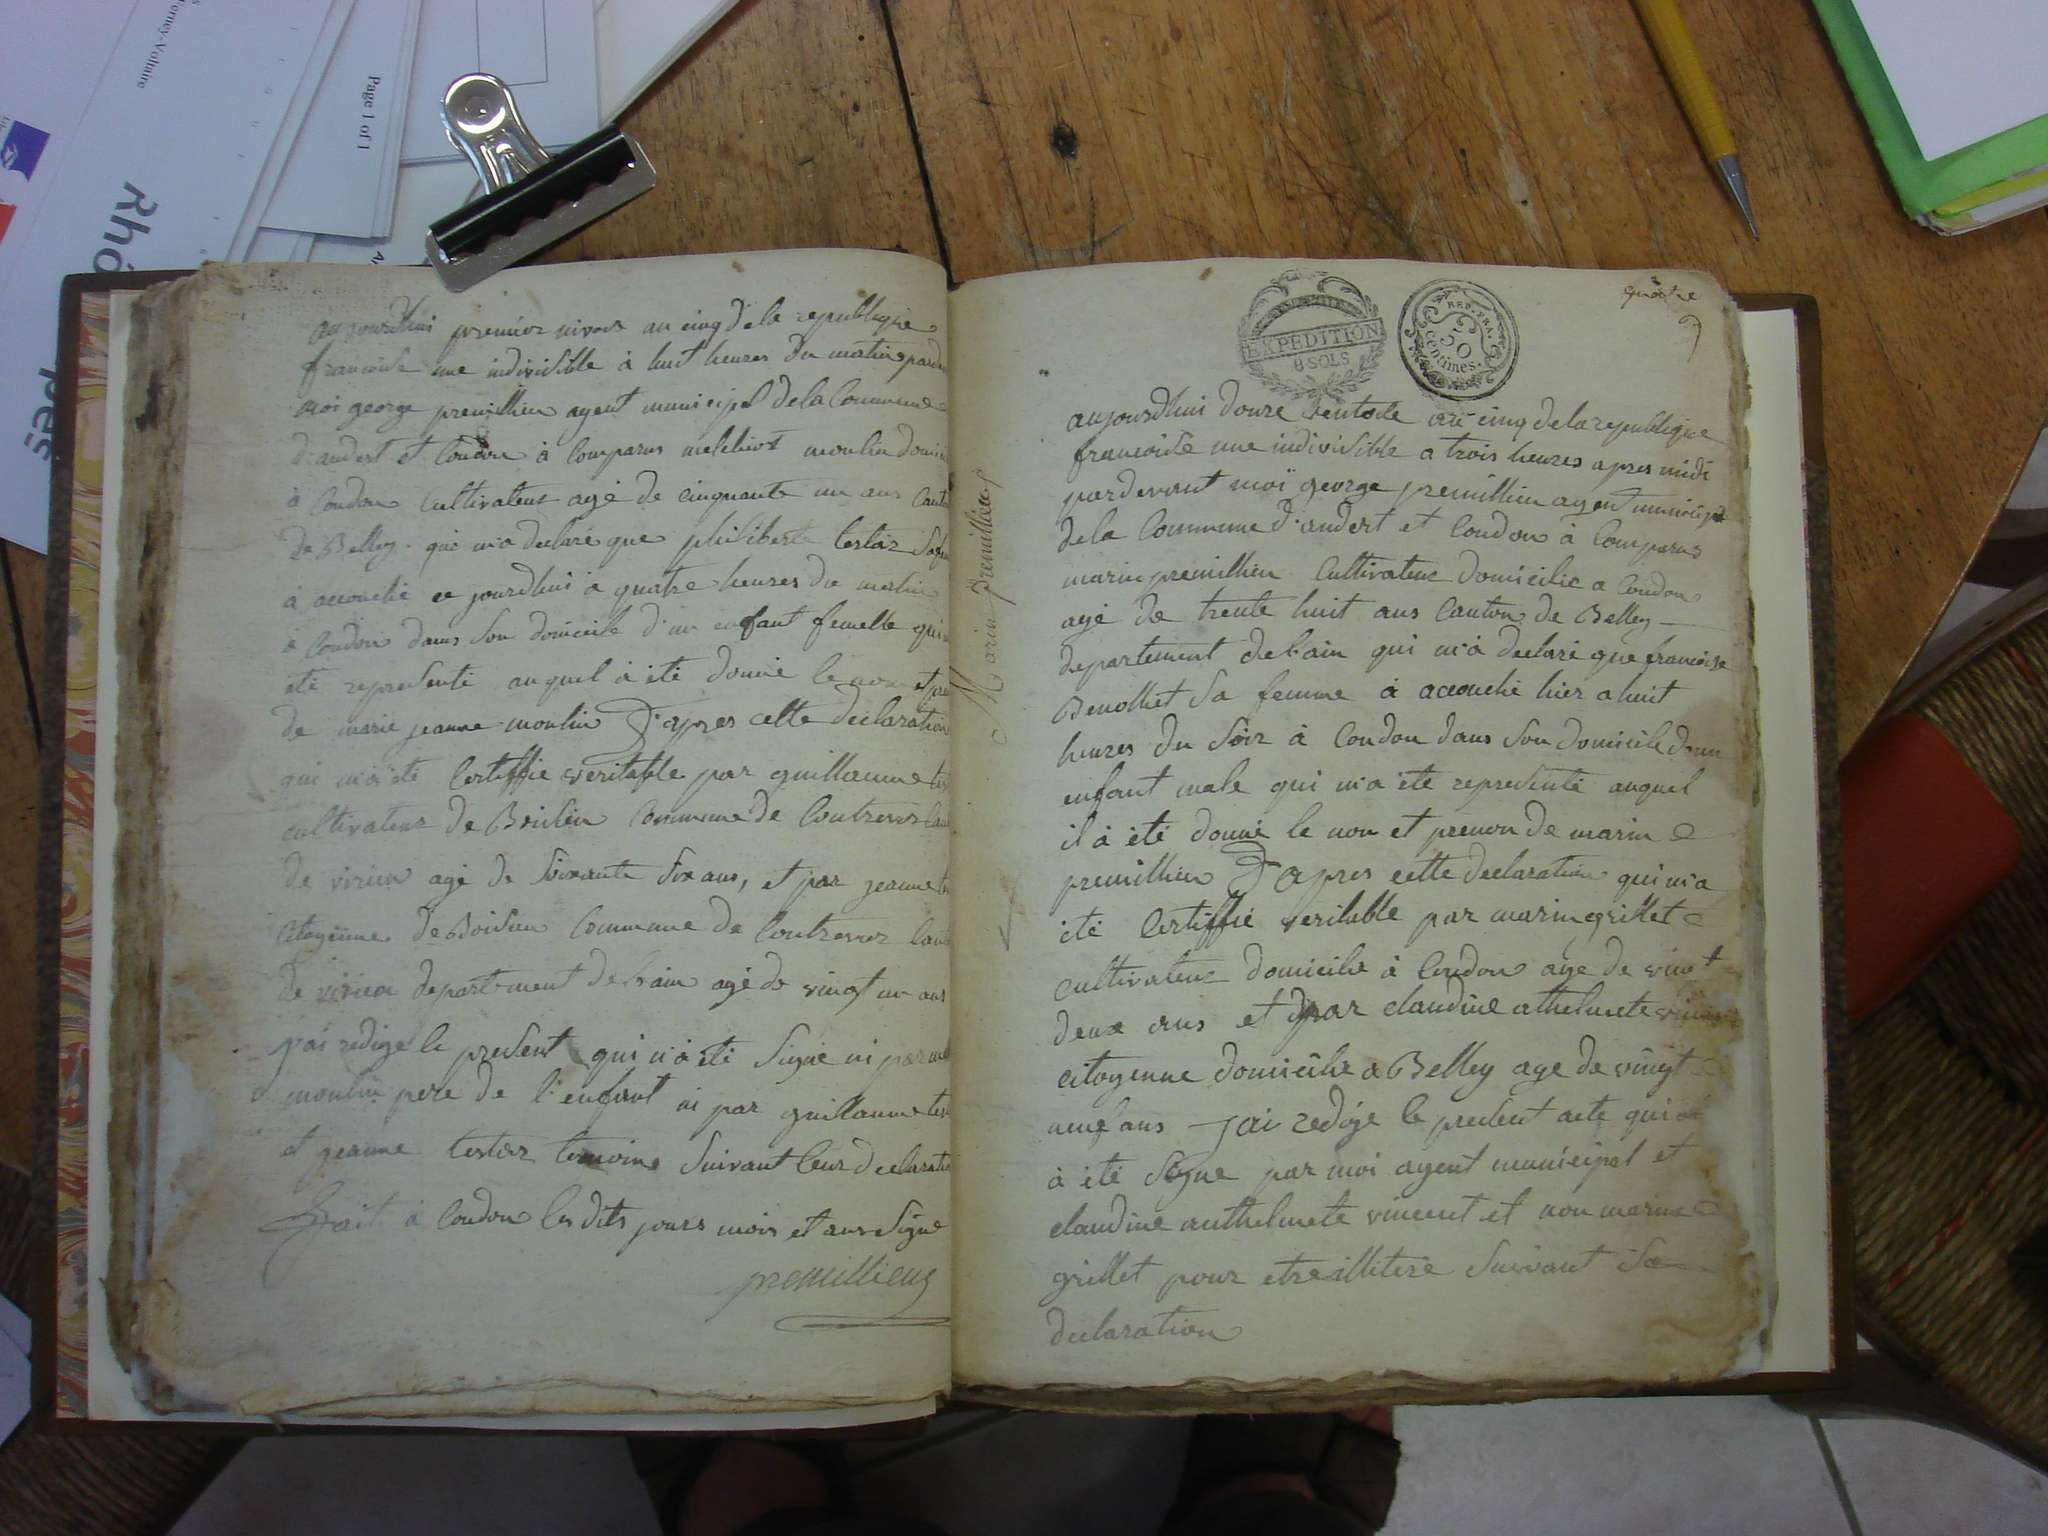 Ferney-Voltaire
Page 1 of 1
Rhô
aujourdhui premier nivose an cinq de la republique
francoise une indivisible à huit heures du matin pard
moi george premillieu agent municipal de la Commune
d'andert et Condon à comparus melchiot moulin domi
à Condon cultivateur agé de cinquante un ans Cant
de Belley qui m'a declaré que philiberte testaz sa
à accouché ce jourdhui à quatre heures du matin
à Condon dans son domicile d'un enfant femelle qui
été representé auquel à été donné le non et pre
de marie jeanne moulin D'apres cette declaration
qui m'a été Certiffie veritable par guillaume tes
cultivateur de Boisieu Commune de Contrevoz Can
de virieu agé de soixante six ans, et par jeanne tes
citoyenne de Boisieu Commune de Contrevoz Can
de virieu departement de l'ain agé de vingt un ans
j'ai redige le present qui n'a été signé ni par
moulin pere de l'enfant ni par guillaume tes
et jeanne testaz temoins suivant leur declaratio
fait à Condon les dits jours mois et ans signé
premillieu
Marin premillieu
EXPEDITION
8 SOLS
REP. FRA.
50
centimes.
quatre
aujourdhui douze ventose an cinq de la republique
francoise une indivisible a trois heures apres midi
pardevant moi george premillieu agent municipal
de la Commune d'andert et Condon à Comparus
marin premillieu Cultivateur domicilie a Condon
agé de trente huit ans Canton de Belley
departement de l'ain qui m'a declaré que francoise
Benollet sa femme à accouché hier a huit
heures du soir à Condon dans son domicile d'un
enfant male qui m'a été representé auquel
il à été donné le non et prenon de marin
premillieu D'apres cette declaration qui m'a
été Certiffié veritable par marin grillet
cultivateur domicilie à Condon age de vingt
deux ans et par claudine athelmete vincent
citoyenne domicilie a Belley age de vingt
neuf ans j'ai redige le present acte qui
à été signe par moi agent municipal et
claudine anthelmete vincent et non marin
grillet pour etre illiteré suivant sa
declaration